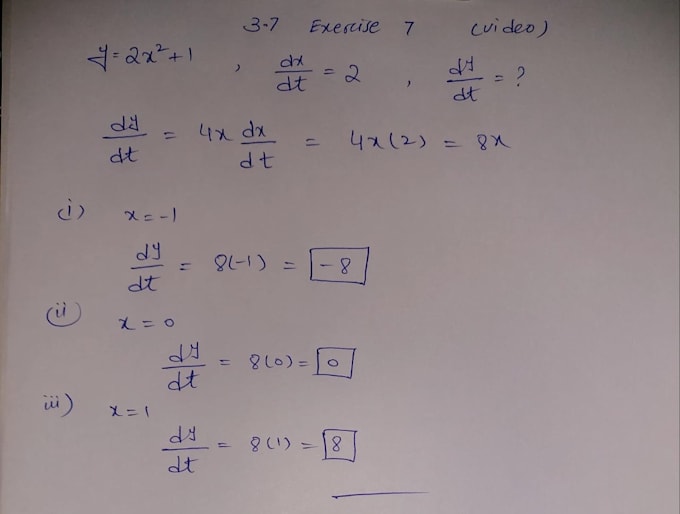 3-7 Exercise 7 (video)
y = 2x² + 1 , dx/dt = 2 , dy/dt = ?
dy/dt = 4x dx/dt = 4x(2) = 8x
i) x = -1
dy/dt = 8(-1) = -8
ii) x = 0
dy/dt = 8(0) = 0
iii) x = 1
dy/dt = 8(1) = 8